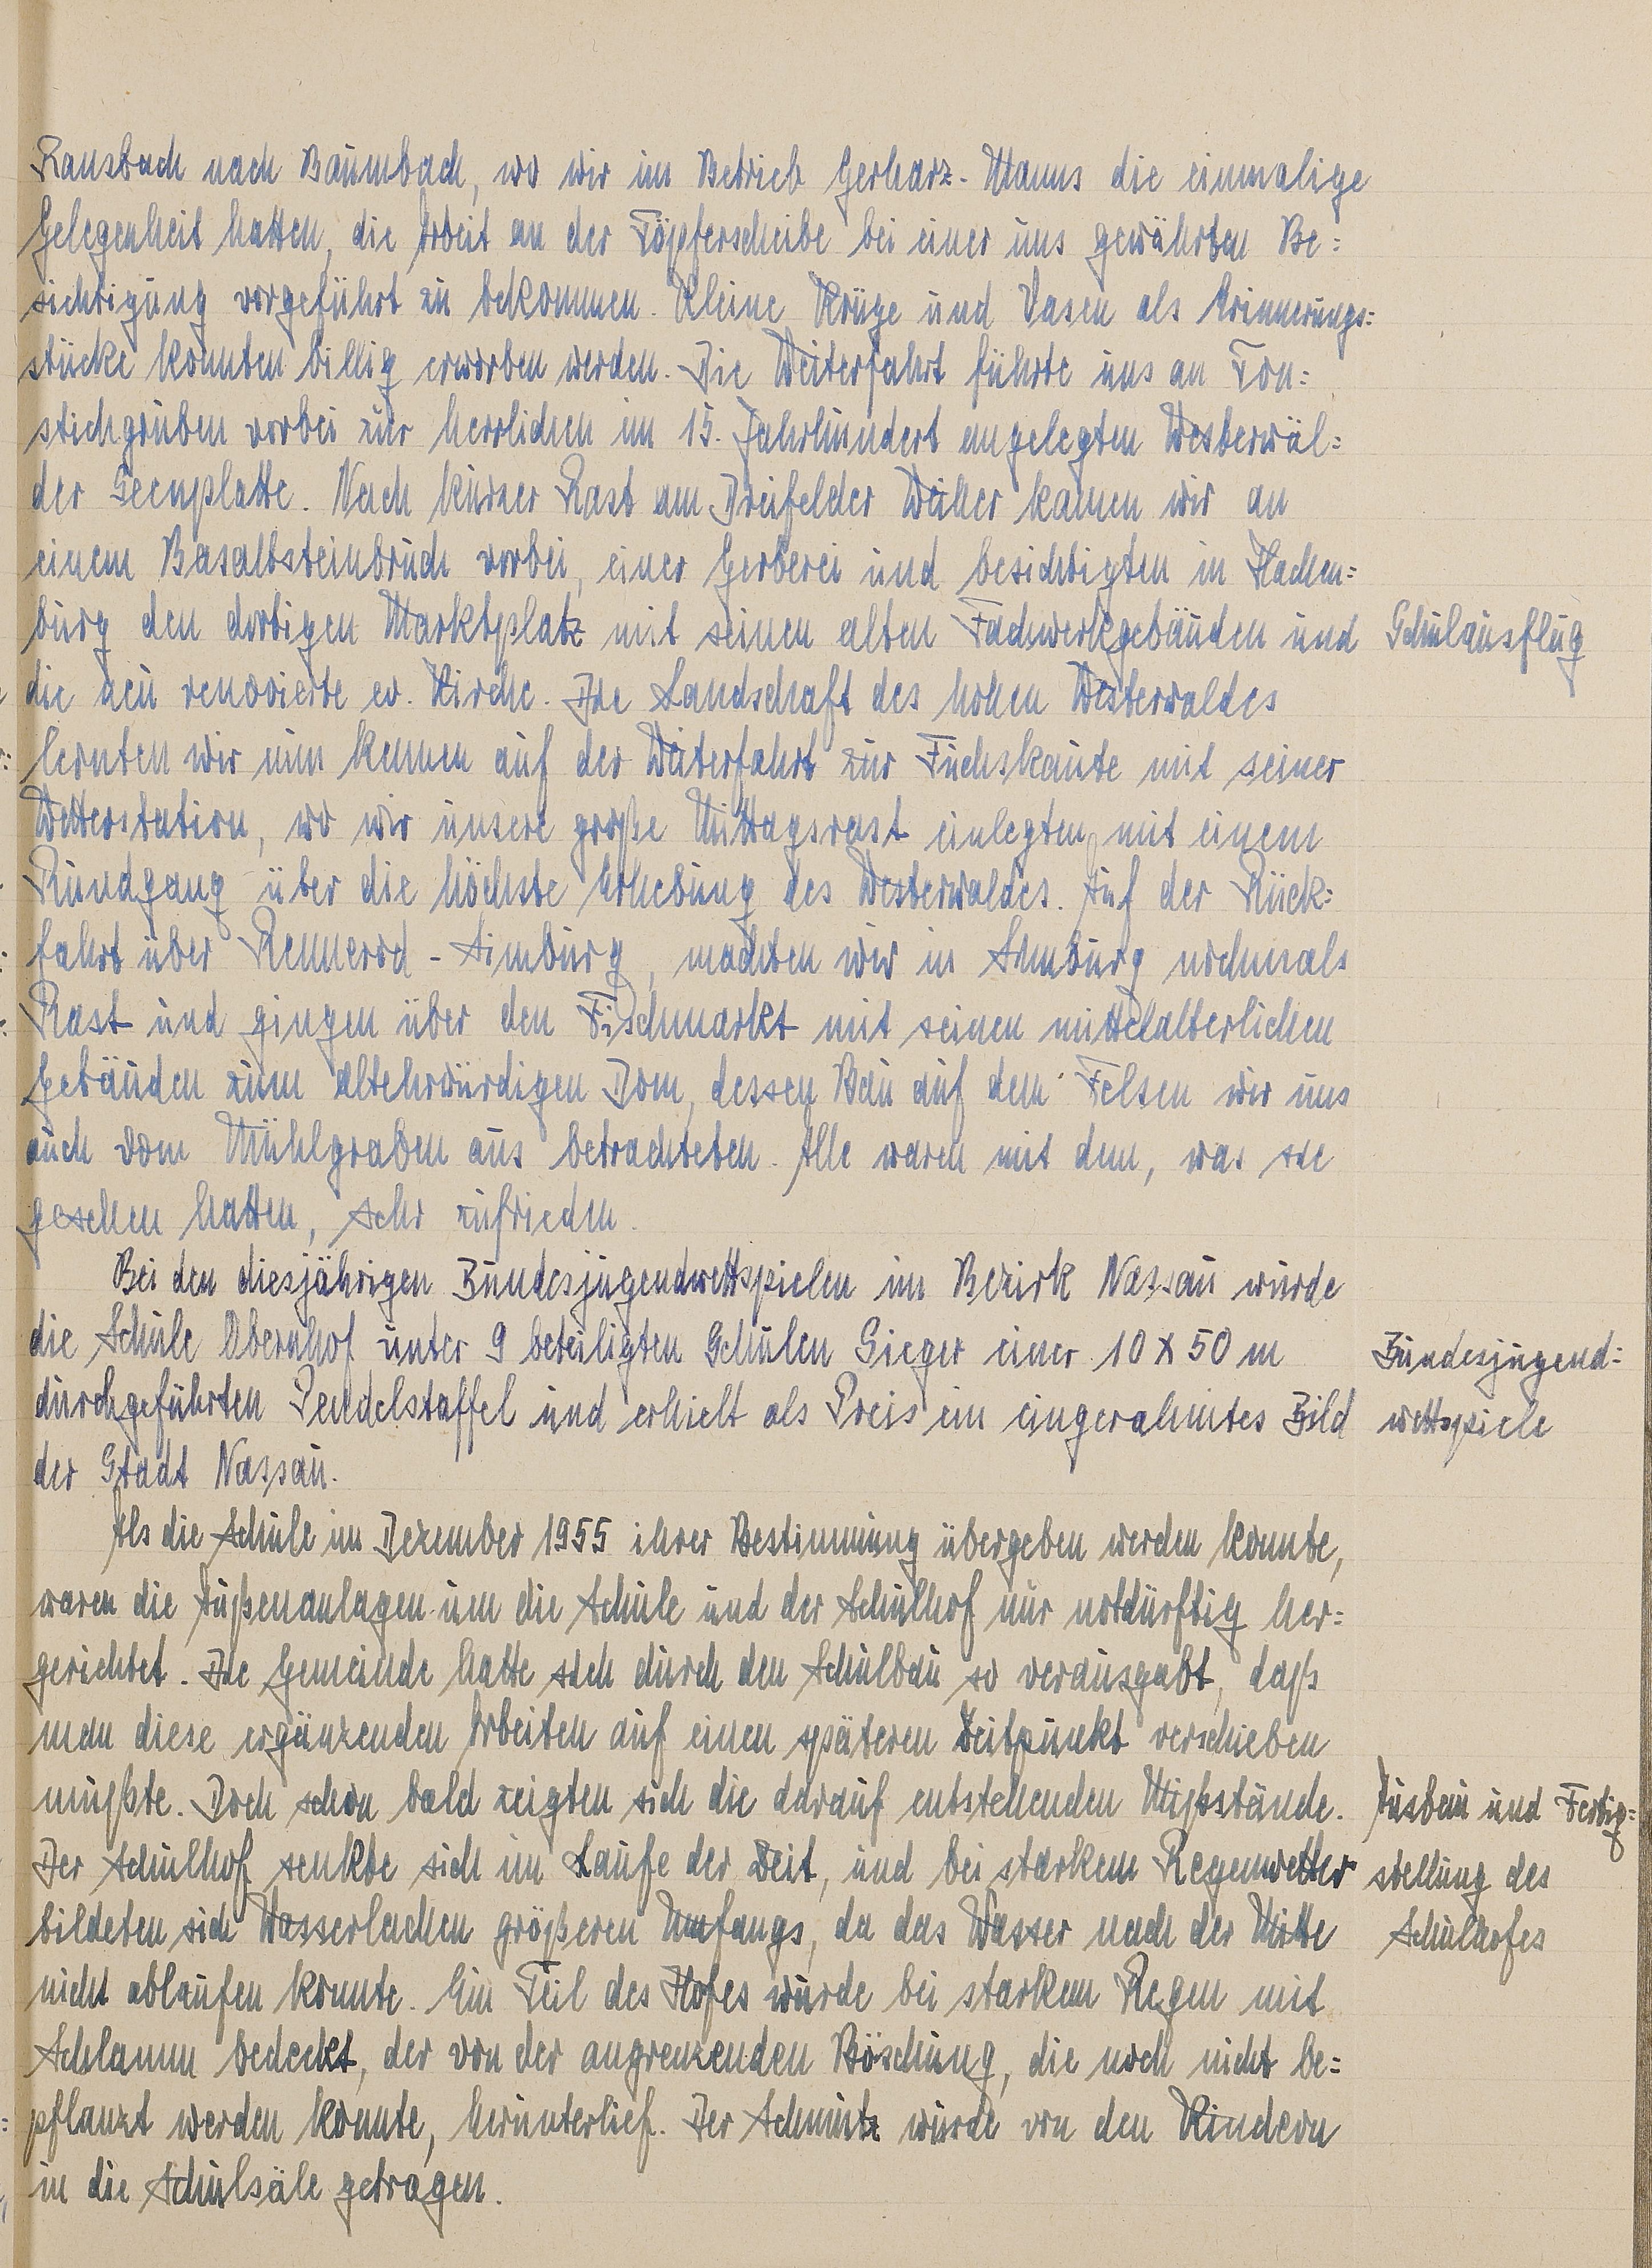 Ransbach nach Baumbach, wo wir im Betrieb Gerharz-Manns die einmalige
Gelegenheit hatten, die Arbeit an der Töpferscheibe bei einer uns gewährten Be=
sichtigung vorgeführt zu bekommen. Kleine Krüge und Vasen als Erinnerungs=
stücke konnten billig erworben werden. Die Weiterfahrt führte uns an Ton=
stichgruben vorbei zur herrlichen im 15. Jahrhundert angelegten Westerwäl=
der Seenplatte. Nach kurzer Rast am Dreifelder Weiher kamen wir an
einem Basaltsteinbruch vorbei, einer Gerberei und besichtigten in Hachen=
burg den dortigen Marktplatz mit seinen alten Fachwerkgebäuden und
Schulausflug
die neu renovierte ev. Kirche. Die Landschaft des hohen Westerwaldes
lernten wir nun kennen auf der Weiterfahrt zur Fuchskaute mit seiner
Wetterstation, wo wir unsere große Mittagsrast einlegten mit einem
Rundgang über die höchste Erhebung des Westerwaldes. Auf der Rück=
fahrt über Rennerod - Limburg, machten wir in Limburg nochmals
Rast und gingen über den Fischmarkt mit seinen mittelalterlichen
Gebäuden zum altehrwürdigen Dom, dessen Bau auf dem Felsen wir uns
auch vom Mühlgraben aus betrachteten. Alle waren mit dem, was sie
gesehen hatten, sehr zufrieden.
Bei den diesjährigen Bundesjugendwettspielen im Bezirk Nassau wurde
die Schule Obernhof unter 9 beteiligten Schulen Sieger einer 10 x 50 m
Bundesjugend=
durchgeführten Pendelstaffel und erhielt als Preis ein eingerahmtes Bild
wettspiele
der Stadt Nassau.
Als die Schule im Dezember 1955 ihrer Bestimmung übergeben werden konnte,
waren die Außenanlagen um die Schule und der Schulhof nur notdürftig her=
gerichtet. Die Gemeinde hatte sich durch den Schulbau so verausgabt, daß
man diese ergänzenden Arbeiten auf einen späteren Zeitpunkt verschieben
mußte. Doch schon bald zeigten sich die darauf entstehenden Mißstände.
Ausbau und Fertig=
Der Schulhof senkte sich im Laufe der Zeit, und bei starkem Regenwetter
stellung des
bildeten sich Wasserlachen größeren Umfangs, da das Wasser nach der Mitte
Schulhofes
nicht ablaufen konnte. Ein Teil des Hofes wurde bei starkem Regen mit
Schlamm bedeckt, der von der angrenzenden Böschung, die noch nicht be=
pflanzt werden konnte, herunterlief. Der Schmutz wurde von den Kindern
in die Schulsäle getragen.